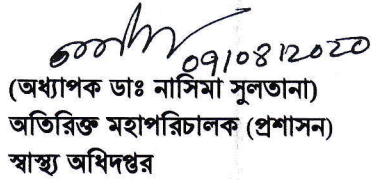 09/08/2020
(অধ্যাপক ডাঃ নাসিমা সুলতানা)
অতিরিক্ত মহাপরিচালক (প্রশাসন)
স্বাস্থ্য অধিদপ্তর